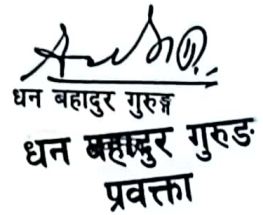 धन बहादुर गुरुङ्ग
धन बहादुर गुरुङ
प्रवक्ता